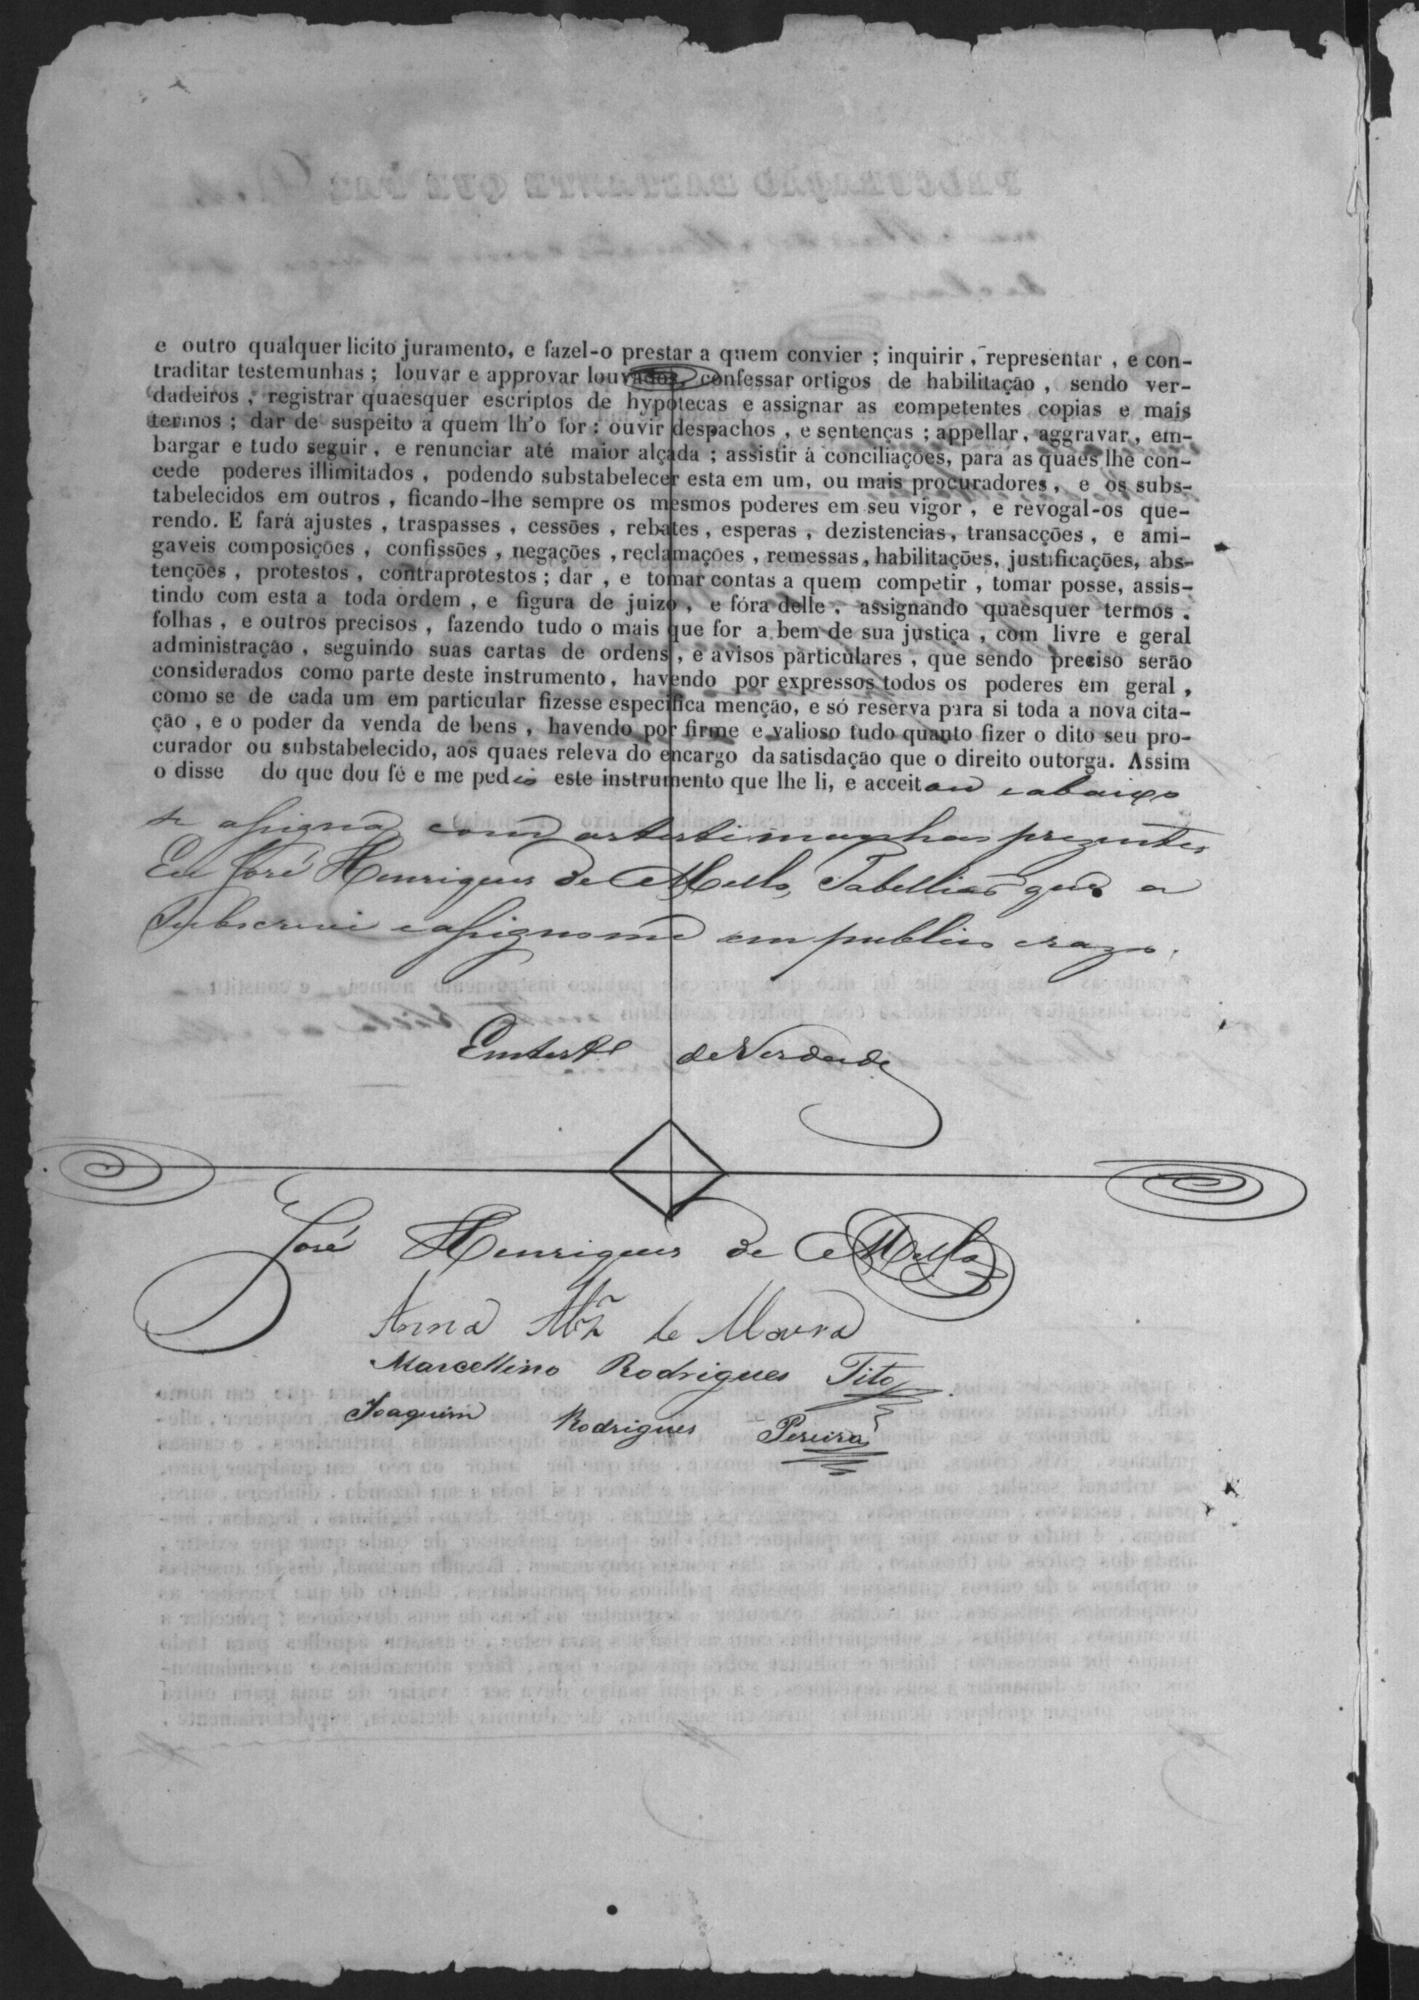 e outro qualquer licito juramento, e fazel-o prestar a quem convier ; inquirir , representar , e con-
traditar testemunhas ; louvar e approvar louvados, confessar ortigos de habilitação , sendo ver-
dadeiros , registrar quaesquer escriptos de hypotecas e assignar as competentes copias e mais
termos ; dar de suspeito a quem lh'o for : ouvir despachos , e sentenças ; appellar, aggravar, em-
bargar e tudo seguir , e renunciar até maior alçada ; assistir á conciliações, para as quaes lhe con-
cede poderes illimitados , podendo substabelecer esta em um, ou mais procuradores , e os subs-
tabelecidos em outros , ficando-lhe sempre os mesmos poderes em seu vigor , e revogal-os que-
rendo. E fará ajustes , traspasses , cessões , rebates , esperas , dezistencias, transacções , e ami-
gaveis composições , confissões , negações , reclamações , remessas, habilitações, justificações, abs-
tenções , protestos , contraprotestos ; dar , e tomar contas a quem competir , tomar posse, assis-
tindo com esta a toda ordem , e figura de juizo , e fóra delle , assignando quaesquer termos ,
folhas , e outros precisos , fazendo tudo o mais que for a bem de sua justiça , com livre e geral
administração , seguindo suas cartas de ordens , e avisos particulares , que sendo preciso serão
considerados como parte deste instrumento, havendo por expressos todos os poderes em geral ,
como se de cada um em particular fizesse especifica menção, e só reserva para si toda a nova cita-
ção , e o poder da venda de bens , havendo por firme e valioso tudo quanto fizer o dito seu pro-
curador ou substabelecido, aos quaes releva do encargo da satisdação que o direito outorga. Assim
o disse do que dou fé e me pedio este instrumento que lhe li, e acceitou e abaixo
se assigna com as testimunhas prezentes
Eu José Henriques de Mello, Tabellião que a
Subscrevi e assignome em publico e razo.
Em test.º de Verdade
José Henriques de Mello
Anna de Moura
Marcellino Rodrigues Tito
Joaquim Rodrigues Pereira